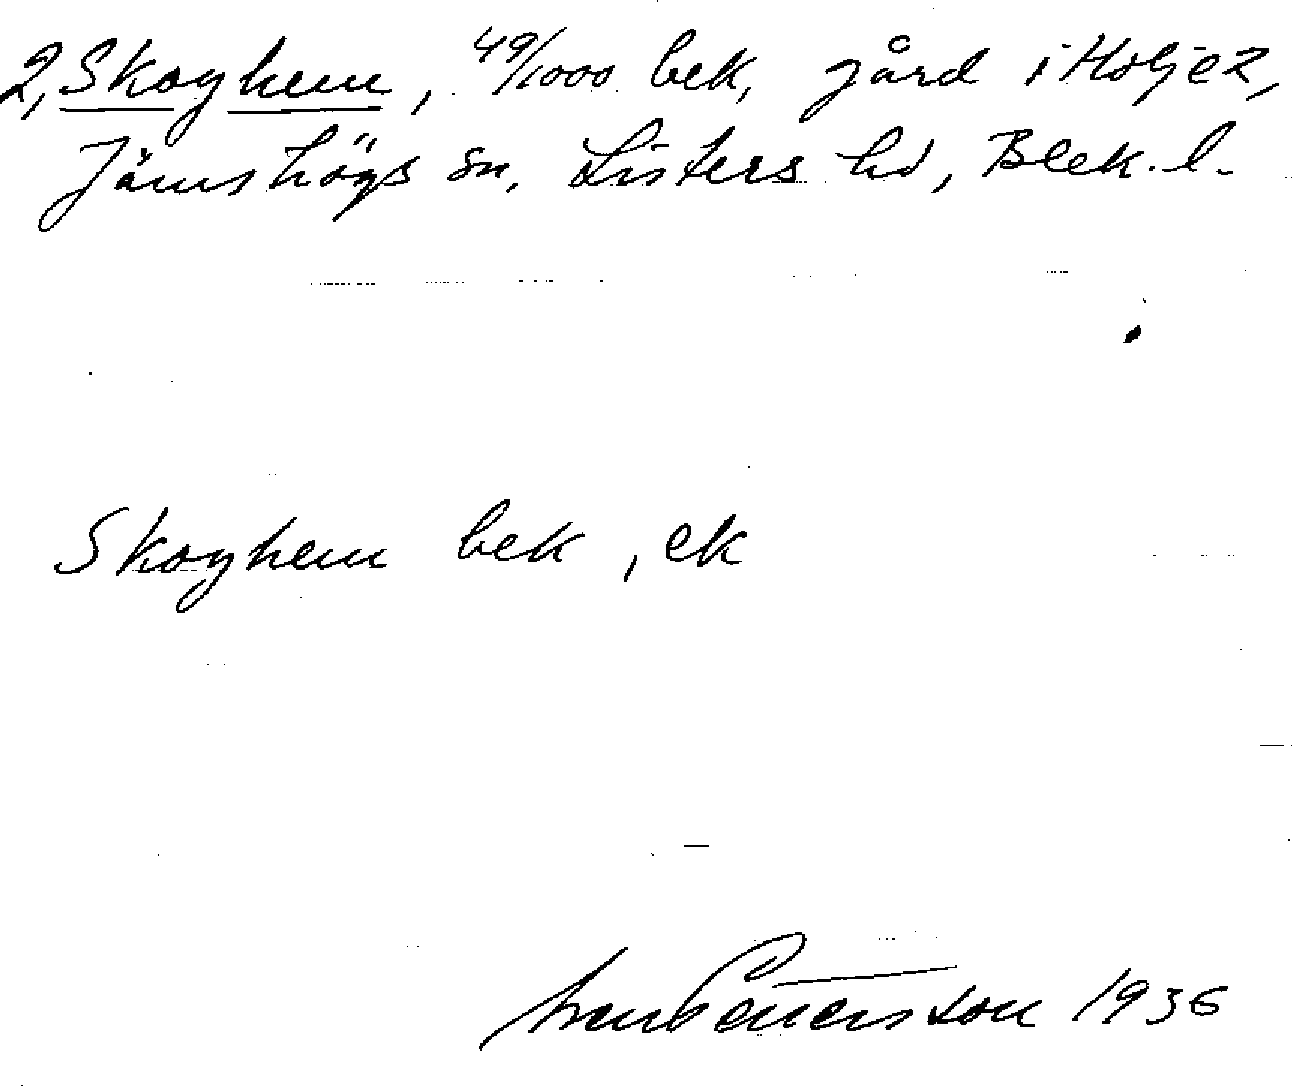 2, Skoghem, 49/1000 bek, gård i Holje 2,
Jämshögs sn, Listers hd, Blek. l.
Skoghem bek, ek
1936